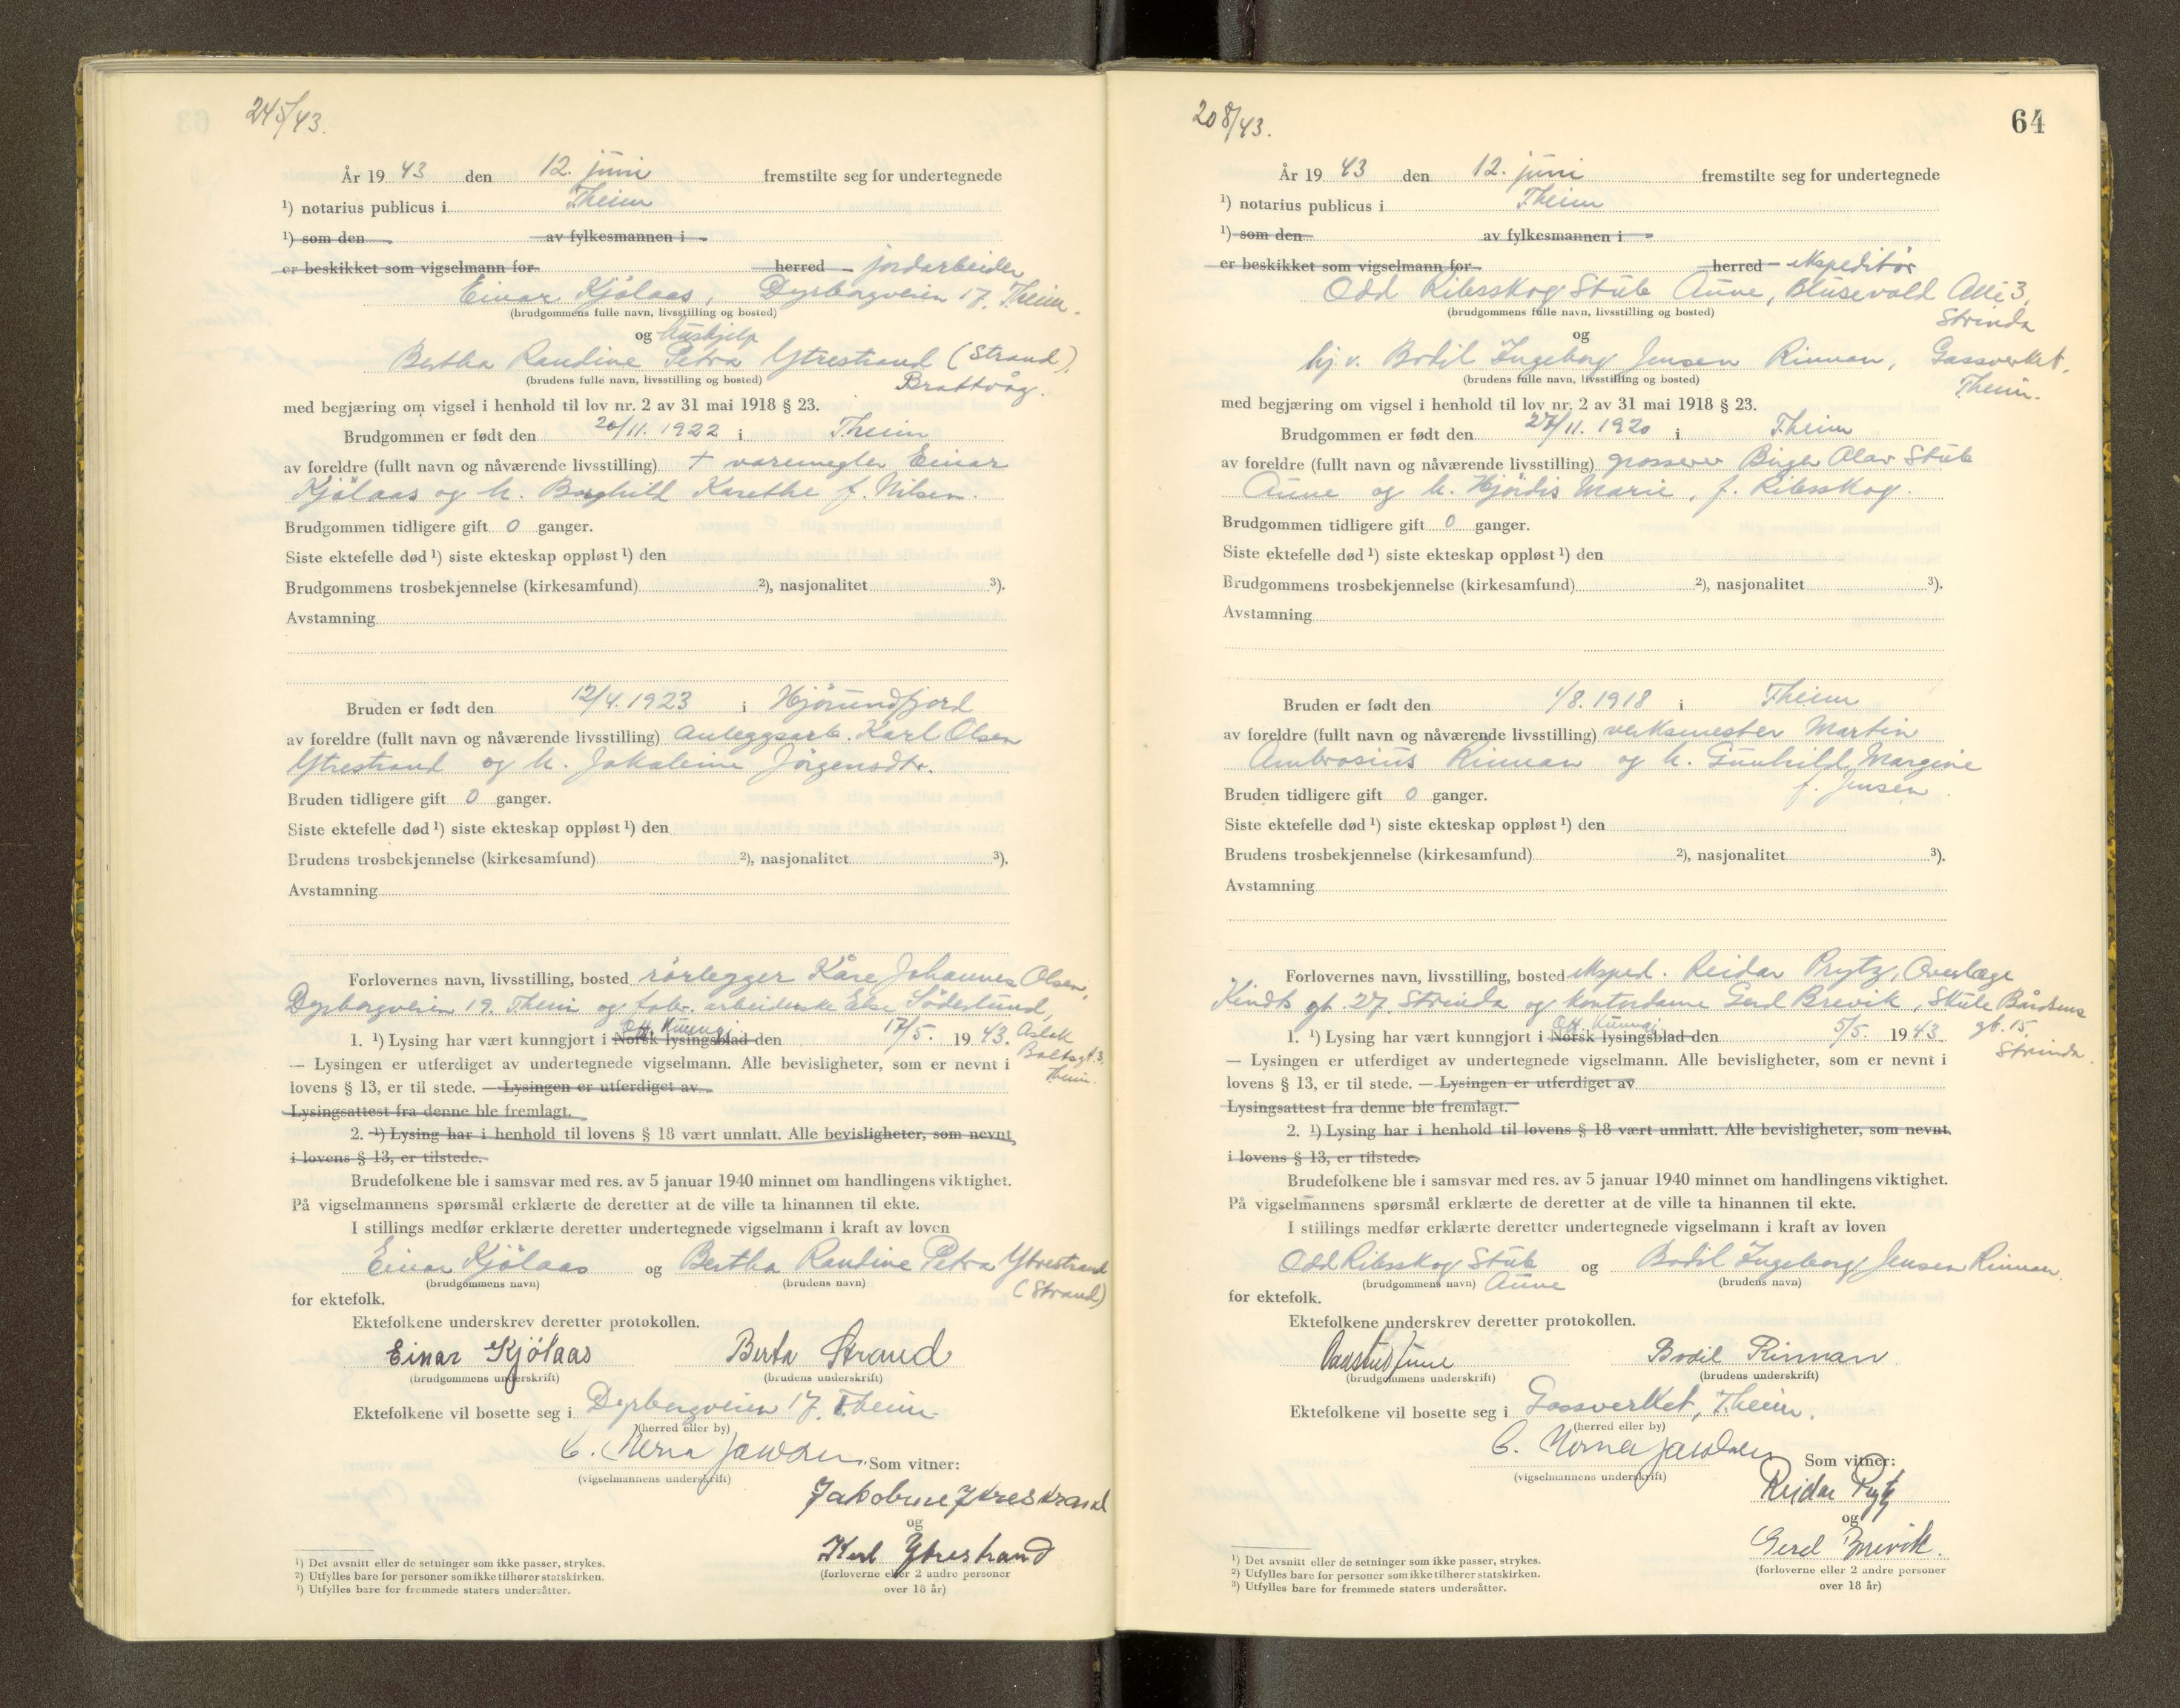 245/43.
År 19 43 den 12. juni fremstilte seg for undertegnede
¹) notarius publicus i Theim
¹) som den av fylkesmannen i
er beskikket som vigselmann for herred jordarbeider
Einar Kjölaas, Dyrborgveien 17, Theim.
(brudgommens fulle navn, livsstilling og bosted)
og hushjelp
Bertha Randine Petra Ytrestrand (Strand),
(brudens fulle navn, livsstilling og bosted) Brattvåg.
med begjæring om vigsel i henhold til lov nr. 2 av 31 mai 1918 § 23.
Brudgommen er født den 20/11. 1922 i Theim
av foreldre (fullt navn og nåværende livsstilling) + varemegler Einar
Kjölaas og h. Borghild Karethe f. Nilsen.
Brudgommen tidligere gift 0 ganger.
Siste ektefelle død ¹) siste ekteskap oppløst ¹) den
Brudgommens trosbekjennelse (kirkesamfund) ²), nasjonalitet ³).
Avstamning
Bruden er født den 12/4. 1923 i Hjörundfjord
av foreldre (fullt navn og nåværende livsstilling) anleggsarb. Karl Olsen
Ytrestrand og h. Jakobine Jörgensdtr.
Bruden tidligere gift 0 ganger.
Siste ektefelle død ¹) siste ekteskap oppløst ¹) den
Brudens trosbekjennelse (kirkesamfund) ²), nasjonalitet ³).
Avstamning
Forlovernes navn, livsstilling, bosted rörlegger Kåre Johannes Olsen,
Dyrborgveien 19. Theim og fabr. arbeiderske Else Söderlund,
1. ¹) Lysing har vært kunngjort i Norsk lysingsblad Off. Kunngj. den 17/5. 1943. Aslak
Boltsgt. 3,
Theim.
— Lysingen er utferdiget av undertegnede vigselmann. Alle bevisligheter, som er nevnt i
lovens § 13, er til stede. — Lysingen er utferdiget av
Lysingsattest fra denne ble fremlagt.
2. ¹) Lysing har i henhold til lovens § 18 vært unnlatt. Alle bevisligheter, som nevnt
i lovens § 13, er tilstede.
Brudefolkene ble i samsvar med res. av 5 januar 1940 minnet om handlingens viktighet.
På vigselmannens spørsmål erklærte de deretter at de ville ta hinannen til ekte.
I stillings medfør erklærte deretter undertegnede vigselmann i kraft av loven
Einar Kjölaas og Bertha Randine Petra Ytrestrand
(brudgommens navn) (brudens navn) (Strand)
for ektefolk.
Ektefolkene underskrev deretter protokollen.
Einar Kjölaas Berta Strand
(brudgommens underskrift) (brudens underskrift)
Ektefolkene vil bosette seg i Dyrborgveien 17, Theim.
(herred eller by)
Som vitner:
(vigselmannens underskrift)
Jakobine Ytrestrand
og
Karl Ytrestrand
(forloverne eller 2 andre personer
over 18 år)
¹) Det avsnitt eller de setninger som ikke passer, strykes.
²) Utfylles bare for personer som ikke tilhører statskirken.
³) Utfylles bare for fremmede staters undersåtter.
208/43.
64
År 19 43 den 12. juni fremstilte seg for undertegnede
¹) notarius publicus i Theim
¹) som den av fylkesmannen i
er beskikket som vigselmann for herred ekspeditör
Odd Ribsskog Stub Aune, Blusevold Allé 3,
(brudgommens fulle navn, livsstilling og bosted) Strinda
og
hj. v. Bodil Ingeborg Jensen Rinnan, Gassverket,
(brudens fulle navn, livsstilling og bosted) Theim.
med begjæring om vigsel i henhold til lov nr. 2 av 31 mai 1918 § 23.
Brudgommen er født den 27/11. 1920 i Theim
av foreldre (fullt navn og nåværende livsstilling) grosserer Birger Olav Stub
Aune og h. Hjördis Marie, f. Ribsskog.
Brudgommen tidligere gift 0 ganger.
Siste ektefelle død ¹) siste ekteskap oppløst ¹) den
Brudgommens trosbekjennelse (kirkesamfund) ²), nasjonalitet ³).
Avstamning
Bruden er født den 1/8. 1918 i Theim
av foreldre (fullt navn og nåværende livsstilling) verksmester Martin
Ambrosius Rinnan og h. Gunhild Margine
f. Jensen
Bruden tidligere gift 0 ganger.
Siste ektefelle død ¹) siste ekteskap oppløst ¹) den
Brudens trosbekjennelse (kirkesamfund) ²), nasjonalitet ³).
Avstamning
Forlovernes navn, livsstilling, bosted eksped. Reidar Prytz, Overlæge
Kindts gt. 27. Strinda og kontordame Gerd Brevik, Skule Bårdsens
gt. 15,
Strinda.
1. ¹) Lysing har vært kunngjort i Norsk lysingsblad Off. Kunngj. den 5/5. 1943.
— Lysingen er utferdiget av undertegnede vigselmann. Alle bevisligheter, som er nevnt i
lovens § 13, er til stede. — Lysingen er utferdiget av
Lysingsattest fra denne ble fremlagt.
2. ¹) Lysing har i henhold til lovens § 18 vært unnlatt. Alle bevisligheter, som nevnt
i lovens § 13, er tilstede.
Brudefolkene ble i samsvar med res. av 5 januar 1940 minnet om handlingens viktighet.
På vigselmannens spørsmål erklærte de deretter at de ville ta hinannen til ekte.
I stillings medfør erklærte deretter undertegnede vigselmann i kraft av loven
Odd Ribsskog Stub og Bodil Ingeborg Jensen Rinnan.
(brudgommens navn) Aune (brudens navn)
for ektefolk.
Ektefolkene underskrev deretter protokollen.
Bodil Rinnan
(brudgommens underskrift) (brudens underskrift)
Ektefolkene vil bosette seg i Gassverket, Theim.
(herred eller by)
Som vitner:
(vigselmannens underskrift)
Reidar Prytz
og
Gerd Brevik.
(forloverne eller 2 andre personer
over 18 år)
¹) Det avsnitt eller de setninger som ikke passer, strykes.
²) Utfylles bare for personer som ikke tilhører statskirken.
³) Utfylles bare for fremmede staters undersåtter.